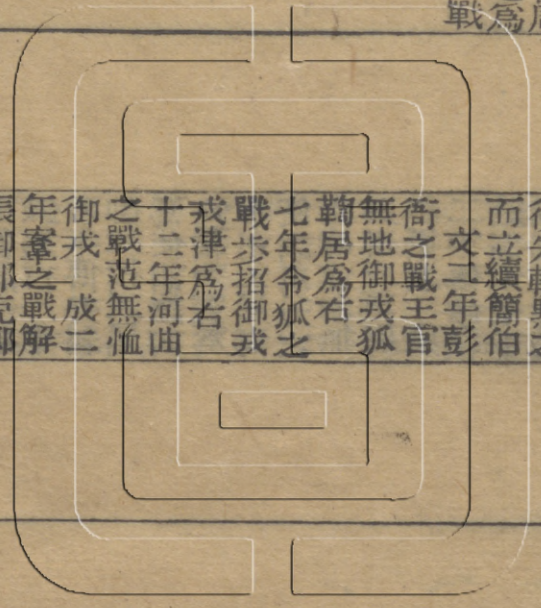 爲
戰
而立續簡伯
文二年彭
衙之戰王官
無地御戎狐
鞫居爲右
七年令狐之
戰步招御戎
戎津爲右
十二年河曲
之戰范無恤
御戎 成二
年鞌之戰解